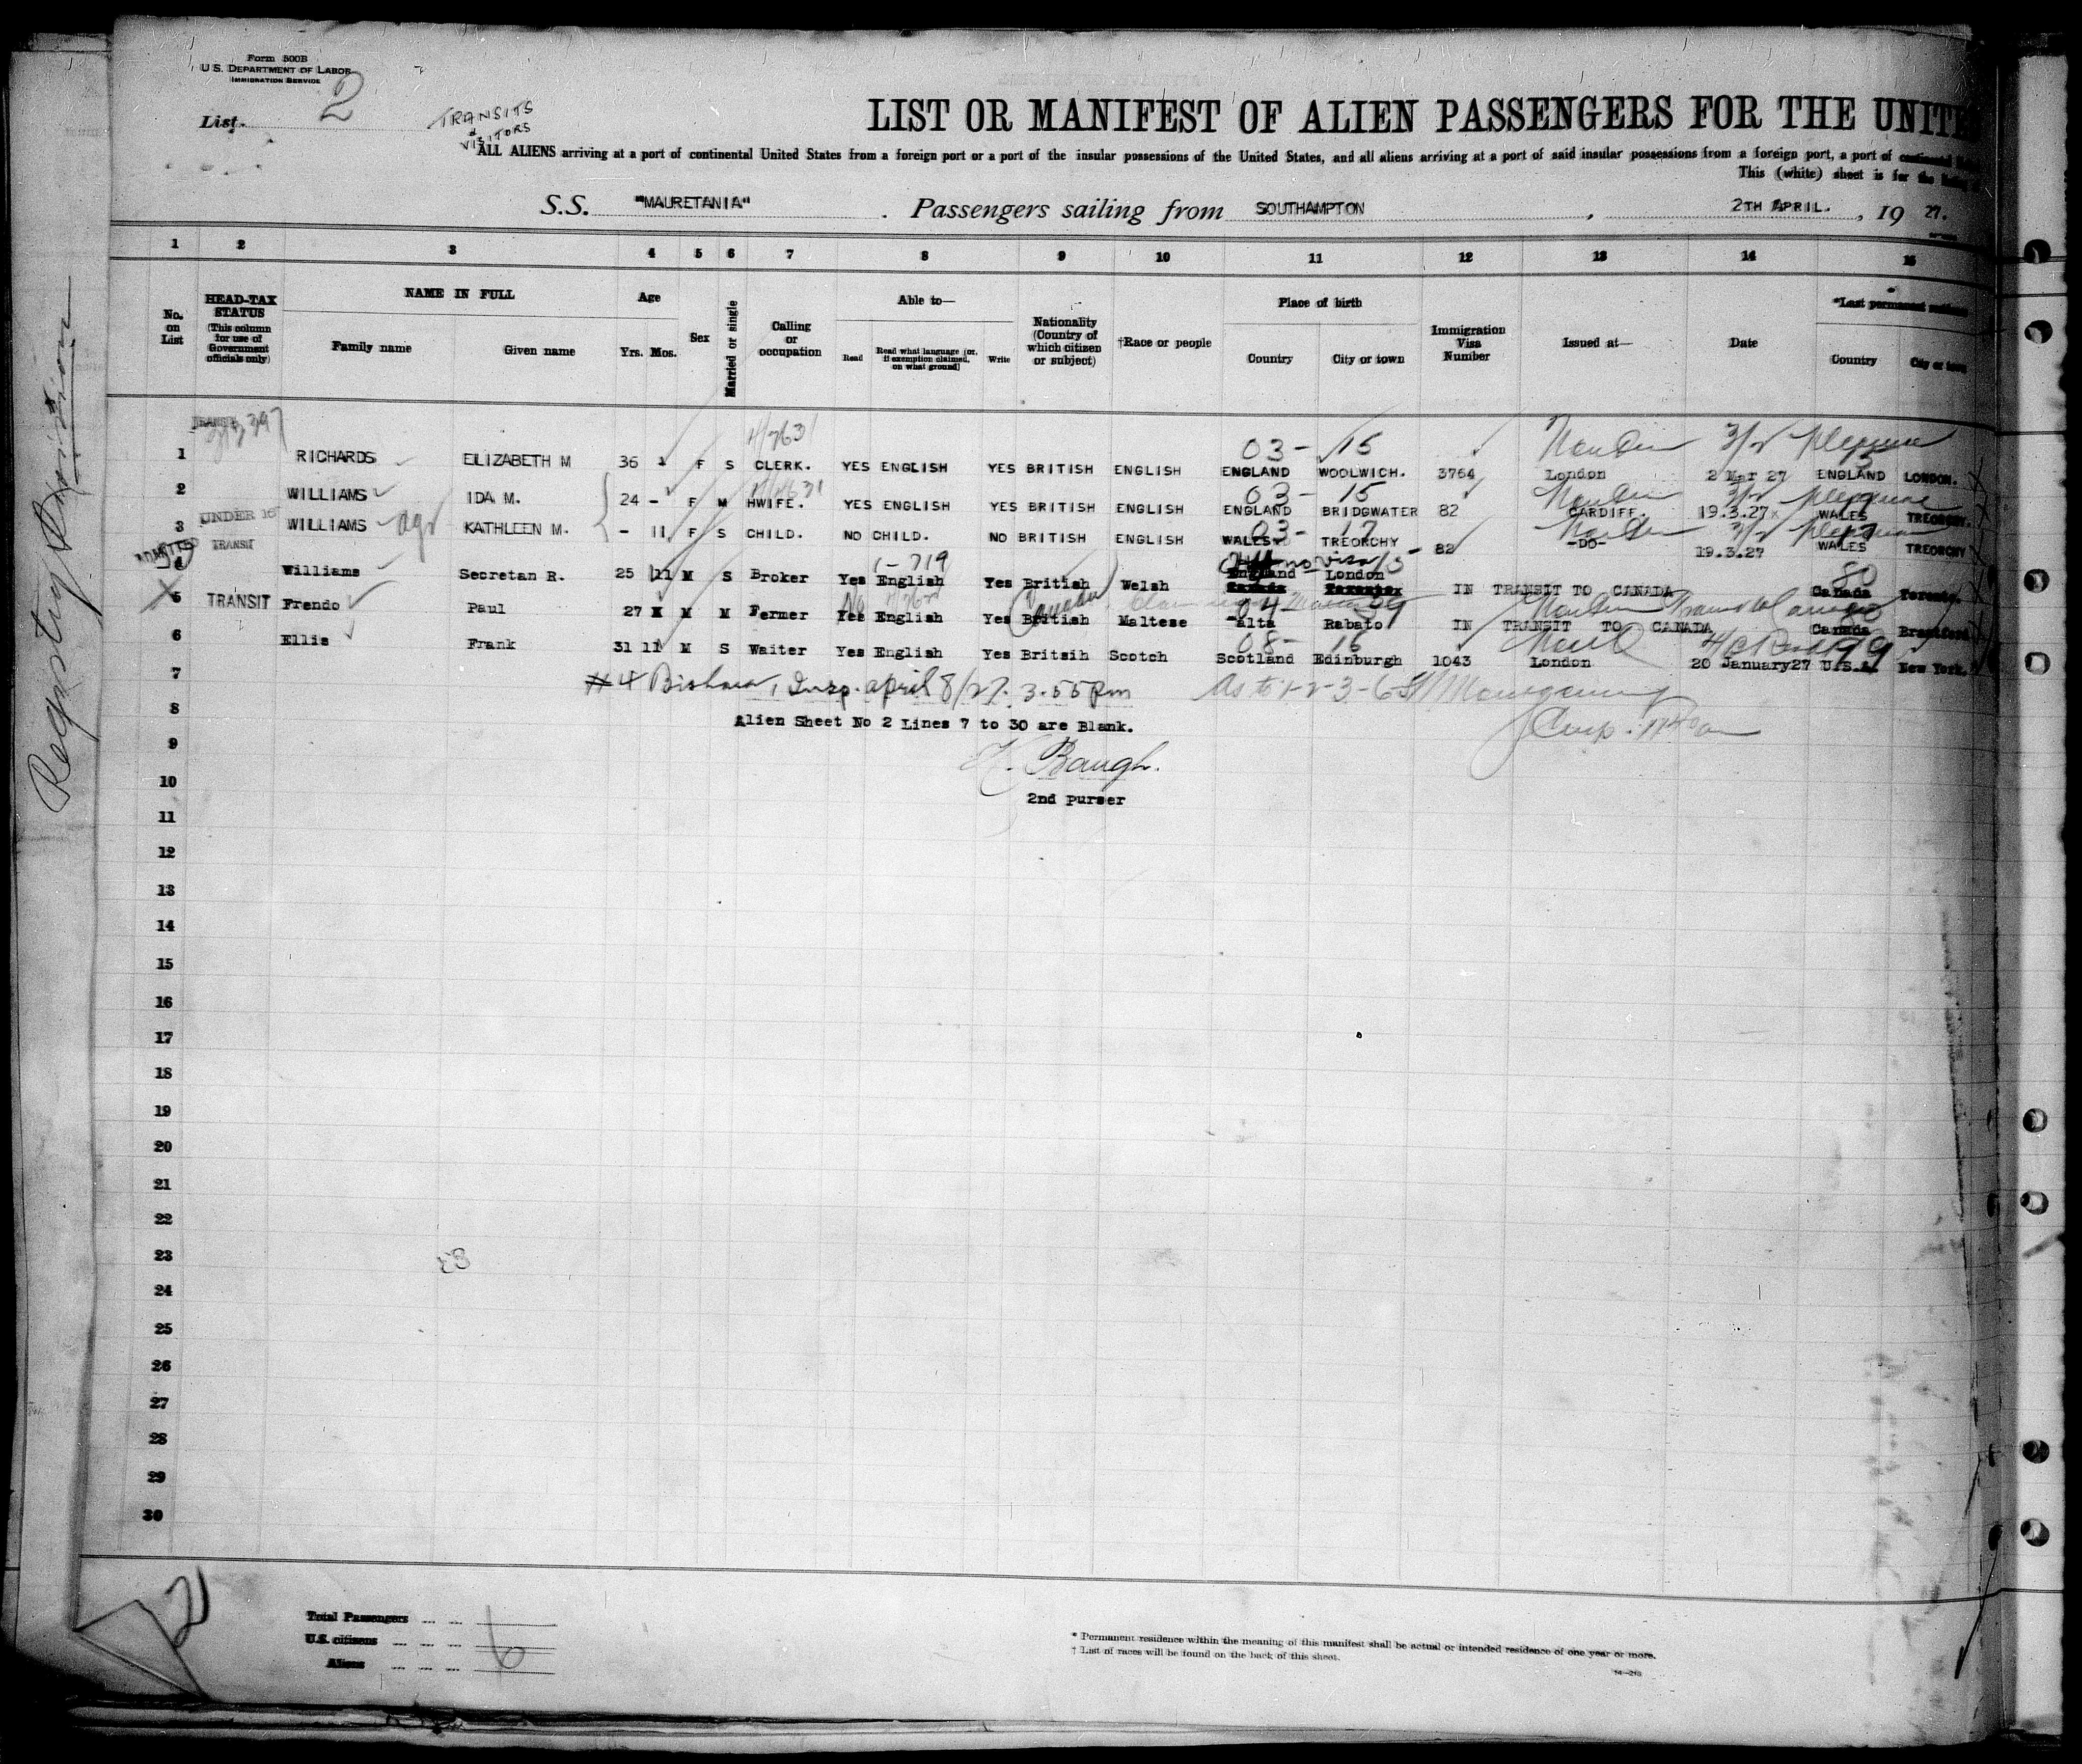 Form 500B
U.S. DEPARTMENT OF LABOR
IMMIGRATION SERVICE
List 2
TRANSITS
&
VISITORS
LIST OR MANIFEST OF ALIEN PASSENGERS FOR THE UNITE
ALL ALIENS arriving at a port of continental United States from a foreign port or a port of the insular possessions of the United States, and all aliens arriving at a port of said insular possessions from a foreign port, a port of continental
This (white) sheet is for the listing
S.S. "MAURETANIA" . Passengers sailing from SOUTHAMPTON , 2TH APRIL. , 19 27.
1 2 3 4 5 6 7 8 9 10 11 12 13 14 15
No. on List
HEAD-TAX STATUS (This column for use of Government officials only)
NAME IN FULL
Family name
Given name
Age
Yrs. Mos.
Sex
Married or single
Calling or occupation
Able to—
Read
Read what language (or, if exemption claimed, on what ground)
Write
Nationality (Country of which citizen or subject)
†Race or people
Place of birth
Country
City or town
Immigration Visa Number
Issued at—
Date
*Last permanent
Country
City or town
1 RICHARDS ELIZABETH M 36 F S CLERK. YES ENGLISH YES BRITISH ENGLISH ENGLAND WOOLWICH. 3764 London 2 Mar 27 ENGLAND LONDON.
03- 15
2 WILLIAMS IDA M. 24 - F M HWIFE. YES ENGLISH YES BRITISH ENGLISH ENGLAND BRIDGWATER 82 CARDIFF. 19.3.27 WALES TREORCHY.
03- 15
3 UNDER 16 WILLIAMS KATHLEEN M. - 11 F S CHILD. NO CHILD. NO BRITISH ENGLISH WALES TREORCHY 82 -DO- 19.3.27 WALES TREORCHY
03- 17
ADMITTED TRANSIT
Williams Secretan R. 25 11 M S Broker Yes English Yes British Welsh England London IN TRANSIT TO CANADA Canada Toronto.
no visa
5 TRANSIT Frendo Paul 27 M M Farmer Yes English Yes British Maltese Malta Rabato IN TRANSIT TO CANADA Canada Brantford
6 Ellis Frank 31 11 M S Waiter Yes English Yes Britsih Scotch Scotland Edinburgh 1043 London 20 January27 U.S.A. New York.
08- 16
7
#4 Bishow, Insp. april 8/27. 3.55 Pm
As to 1-2-3-6
8
Alien Sheet No 2 Lines 7 to 30 are Blank.
9
Baugh.
10
2nd Purser
11
12
13
14
15
16
17
18
19
20
21
22
23
24
25
26
27
28
29
30
Registry Division
Total Passengers
U.S. citizens
Aliens
6
* Permanent residence within the meaning of this manifest shall be actual or intended residence of one year or more.
† List of races will be found on the back of this sheet.